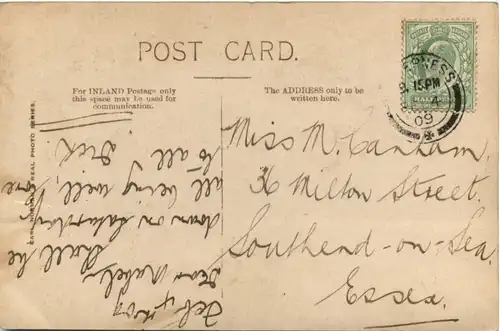 POST CARD.
For INLAND Postage only
this space may be used for
communication.
The ADDRESS only to be
written here.
REAL PHOTO SERIES.
HALFPENNY
15PM
09
Miss M. Canham.
36 Milton Street.
Southend-on-Sea
Essex.
Feb 4th 09
Dear Mabel.
Shall be
down on Saturday
all being well, love
to all
Dick